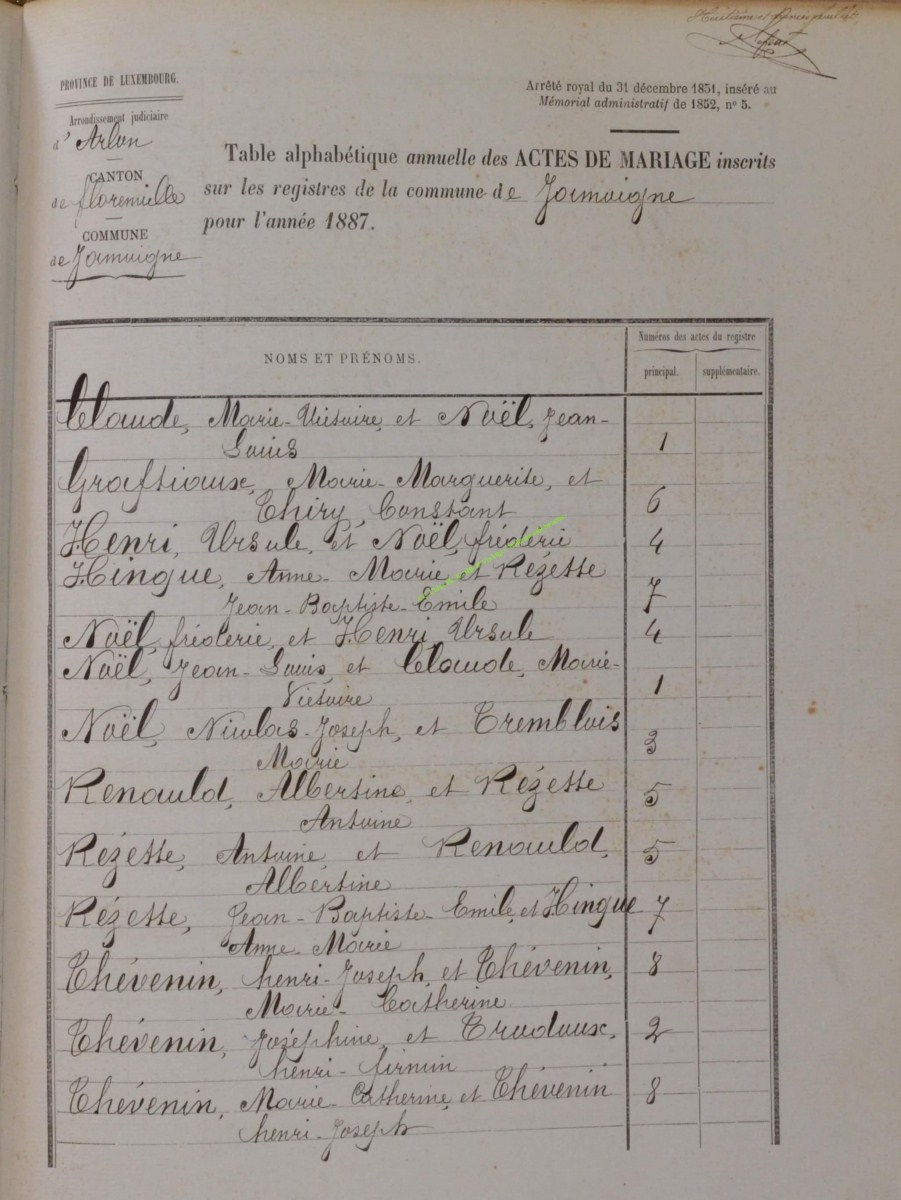 PROVINCE DE LUXEMBOURG.
Arrondissement judiciaire
d'Arlon
CANTON
de florenville
COMMUNE
de Jamoigne
Arrêté royal du 31 décembre 1851, inséré au
Mémorial administratif de 1852, n° 5.
Table alphabétique annuelle des ACTES DE MARIAGE inscrits
sur les registres de la commune de Jamoigne
pour l'année 1887.
NOMS ET PRÉNOMS.
Numéros des actes du registre
principal. supplémentaire.
Claude, Marie-Victoire, et Noël, Jean-
Louis 1
Graftiaux, Marie-Marguerite, et
Thiry, Constant 6
Henri, Ursule, et Noël, fréderic 4
Hingue, Anne-Marie et Rézette
Jean-Baptiste-Emile 7
Noël, fréderic, et Henri, Ursule 4
Noël, Jean-Louis, et Claude, Marie-
Victoire 1
Noël, Nicolas-Joseph, et Tremblois
Marie 3
Renauld, Albertine, et Rézette
Antoine 5
Rézette, Antoine, et Renauld,
Albertine 5
Rézette, Jean-Baptiste-Emile, et Hingue
Anne-Marie 7
Thévenin, henri-Joseph, et Thévenin,
Marie-Catherine 8
Thévenin, Joséphine, et Trodoux,
henri-firmin 2
Thévenin, Marie-Catherine, et Thévenin
henri-Joseph 8